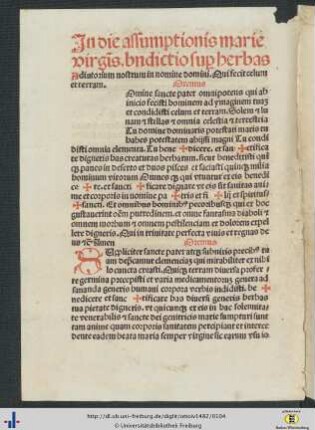 In die assumptionis marie
virgīs. bn̄dictio sup herbas
Adiutorium nostrum in nomine domini. Qui fecit celum
et terram. Oremus
Omine sancte pater omnipotens qui ab
inicio fecisti hominem ad ymaginem tuam
et condidisti celum et terram. Solem et lu
nam et stellas et omnia celestia et terrestria
Tu domine dominaris potestati maris tu
habes potestatem abissi magni Tu condi
disti omnia elementa. Tu bene ✠ dicere. et san ✠ ctifica
re digneris has creaturas herbarum. sicut benedixisti qui
qꝫ panes in deserto et duos pisces et saciasti quinqꝫ milia
hominum virorum
ce ✠ re. et sancti ✠ ficare dignare vt eis sit sanitas anime
me et corporis in nomine pa ✠ tris et fi ✠ lij et spiritus
✠ sancti. Et omnibus
gustauerint oēm putredinem. et omne fantasma diaboli et
omnem morbum et omnem pestilenciam et dolorem expel
lere digneris. Qui in trinitate perfecta viuis et regnas de
us Amen Oremus
Expliciter sancte pater
lo cuncta creasti. terram diuersa profer
re germina precepisti et varia medicamentorum genera ad
sananda generis humani corpora verbis indidisti. be ✠
nedicere et sanc ✠ tificare has diuersi generis herbas
tua pietate digneris. vt quicunqꝫ et eis in hac solemnita
te venerabilis et sancte dei genitricis marie sumpturi sunt
tam anime quam corporis sanitatem percipiant et interce
dente eadem beata maria semper virgine sic earum vsu. io
http://dl.ub.uni-freiburg.de/diglit/
© Universitätsbibliothek Freiburg